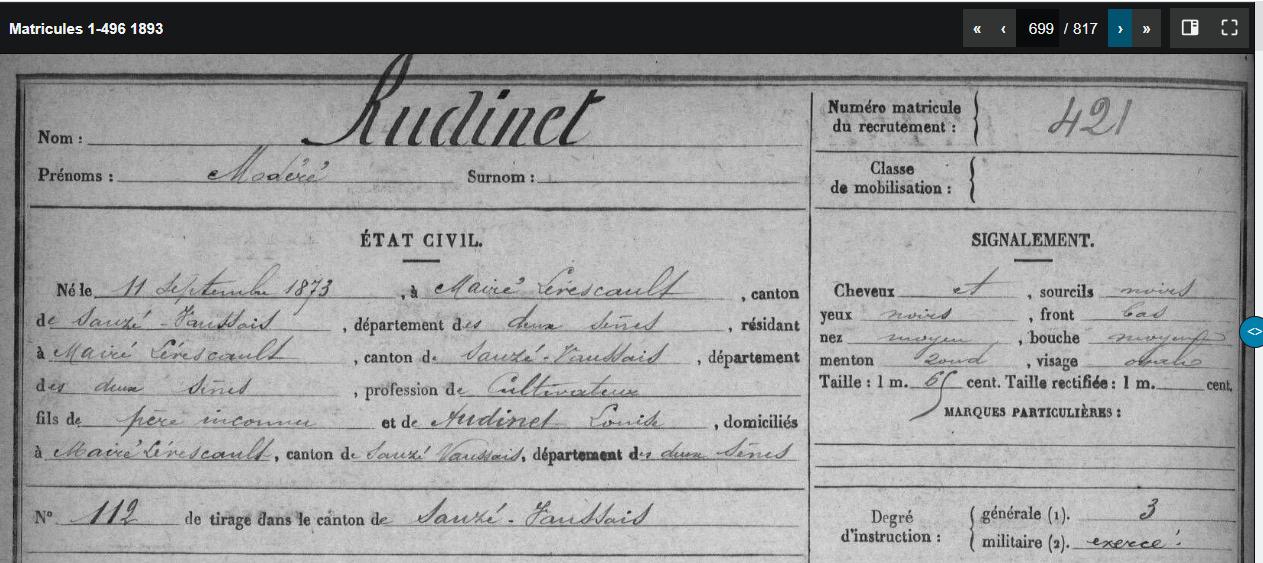 Matricules 1-496 1893
« ‹ 699 / 817 › »
Audinet
Nom :
Prénoms : Modéré Surnom :
Numéro matricule
du recrutement : 421
Classe
de mobilisation :
ÉTAT CIVIL.
Né le 11 Septembre 1873, à Mairé Lévescault, canton
de Sauzé-Vaussais, département des deux Sèvres, résidant
à Mairé Lévescault, canton de Sauzé-Vaussais, département
des deux Sèvres, profession de Cultivateur
fils de père inconnu et de Audinet Louise, domiciliés
à Mairé Lévescault, canton de Sauzé Vaussais, département des deux Sèvres
N° 112 de tirage dans le canton de Sauzé-Vaussais
SIGNALEMENT.
Cheveux et, sourcils noirs
yeux noirs, front bas
nez moyen, bouche moyenne
menton rond, visage ovale
Taille : 1 m. 65 cent. Taille rectifiée : 1 m. cent.
MARQUES PARTICULIÈRES :
Degré
d'instruction :
générale (1). 3
militaire (2). exercé.